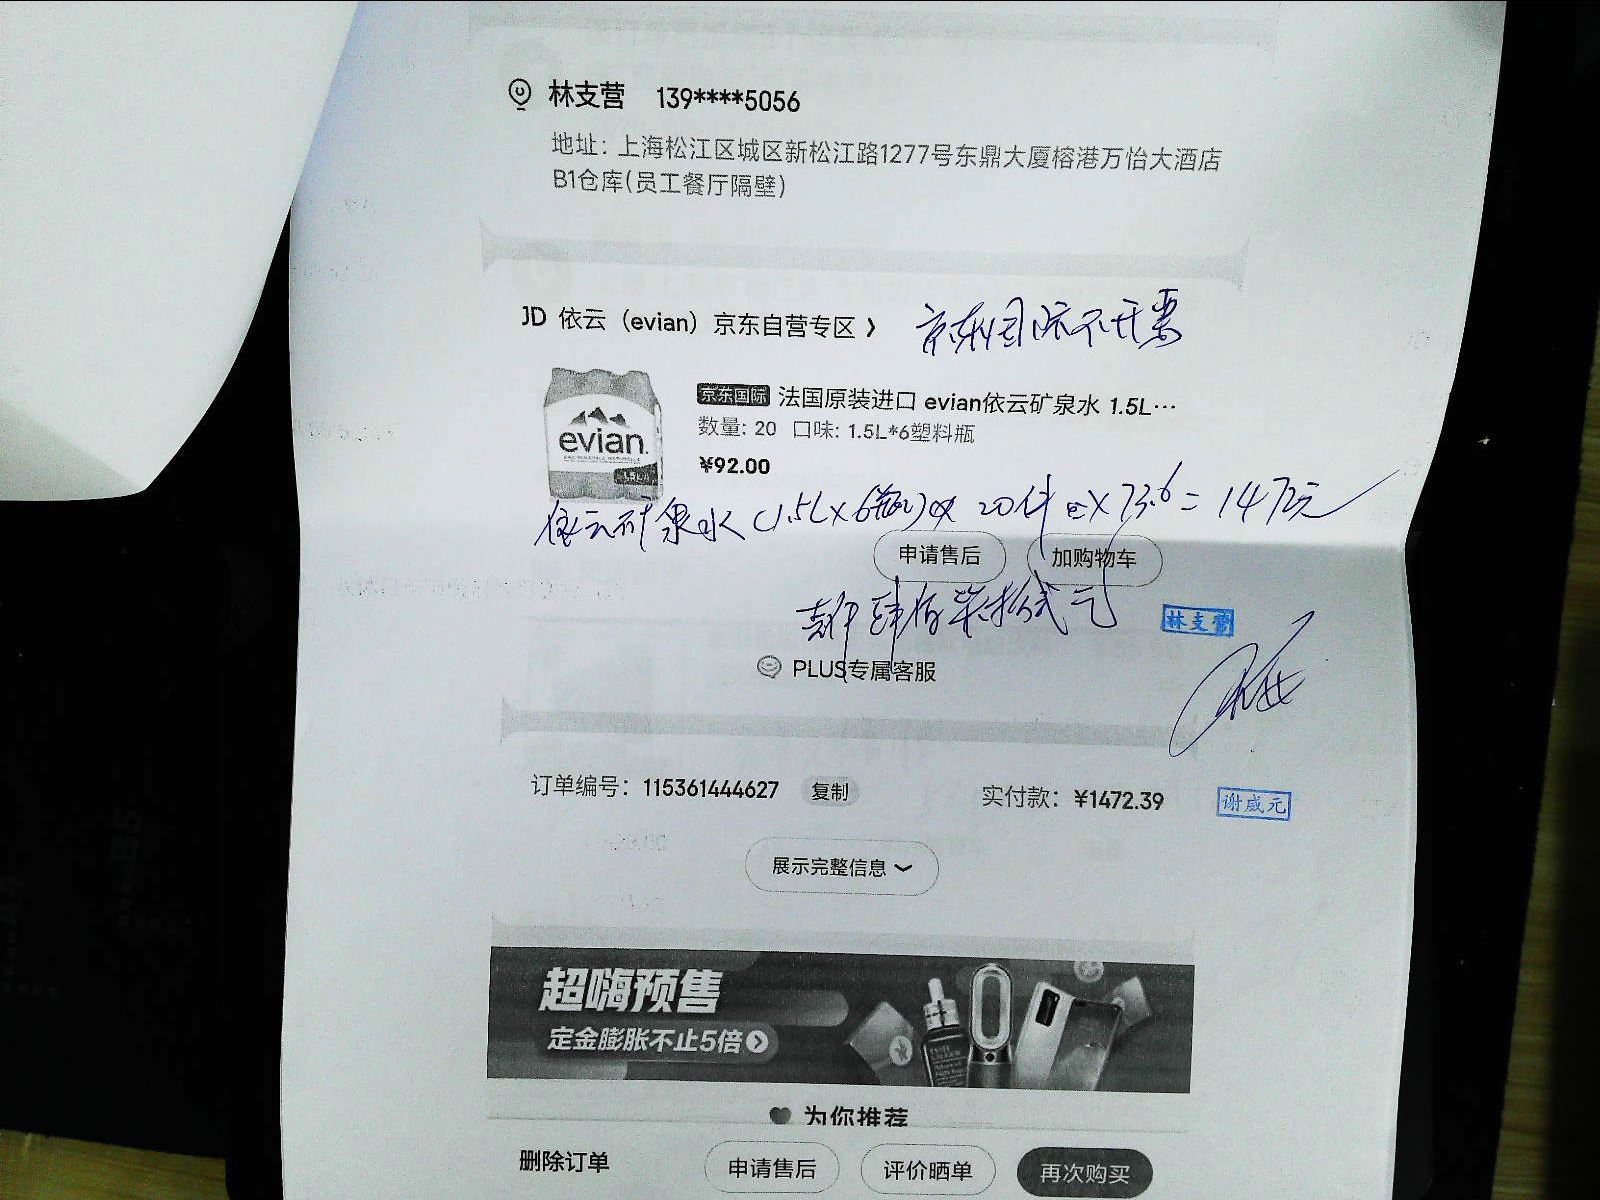 林支营 139****5056
地址：上海松江区城区新松江路1277号东鼎大厦榕港万怡大酒店
B1仓库(员工餐厅隔壁)
JD 依云（evian）京东自营专区 >
京东国际不开票
evian
京东国际 法国原装进口 evian依云矿泉水 1.5L…
数量: 20 口味: 1.5L*6塑料瓶
¥92.00
依云矿泉水(1.5L×6瓶) 20件 × 73.6 = 1472元
申请售后 加购物车
壹仟肆佰柒拾贰元
林支营
PLUS专属客服
订单编号：115361444627 复制 实付款：¥1472.39
谢威元
展示完整信息
超嗨预售
定金膨胀不止5倍
为你推荐
删除订单 申请售后 评价晒单 再次购买